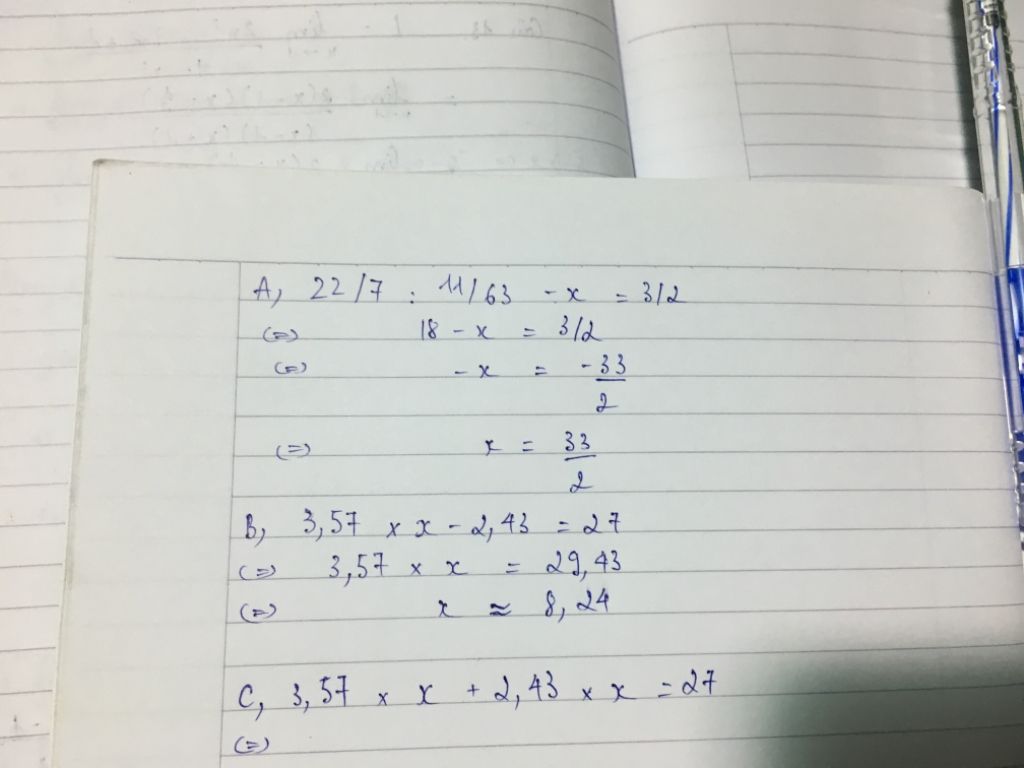 A, 22/7 : 11/63 - x = 3/2
(=) 18 - x = 3/2
(=) - x = -33/2
(=) x = 33/2
B, 3,57 x x - 2,43 = 27
(=) 3,57 x x = 29,43
(=) x ≈ 8,24
C, 3,57 x x + 2,43 x x = 27
(=)